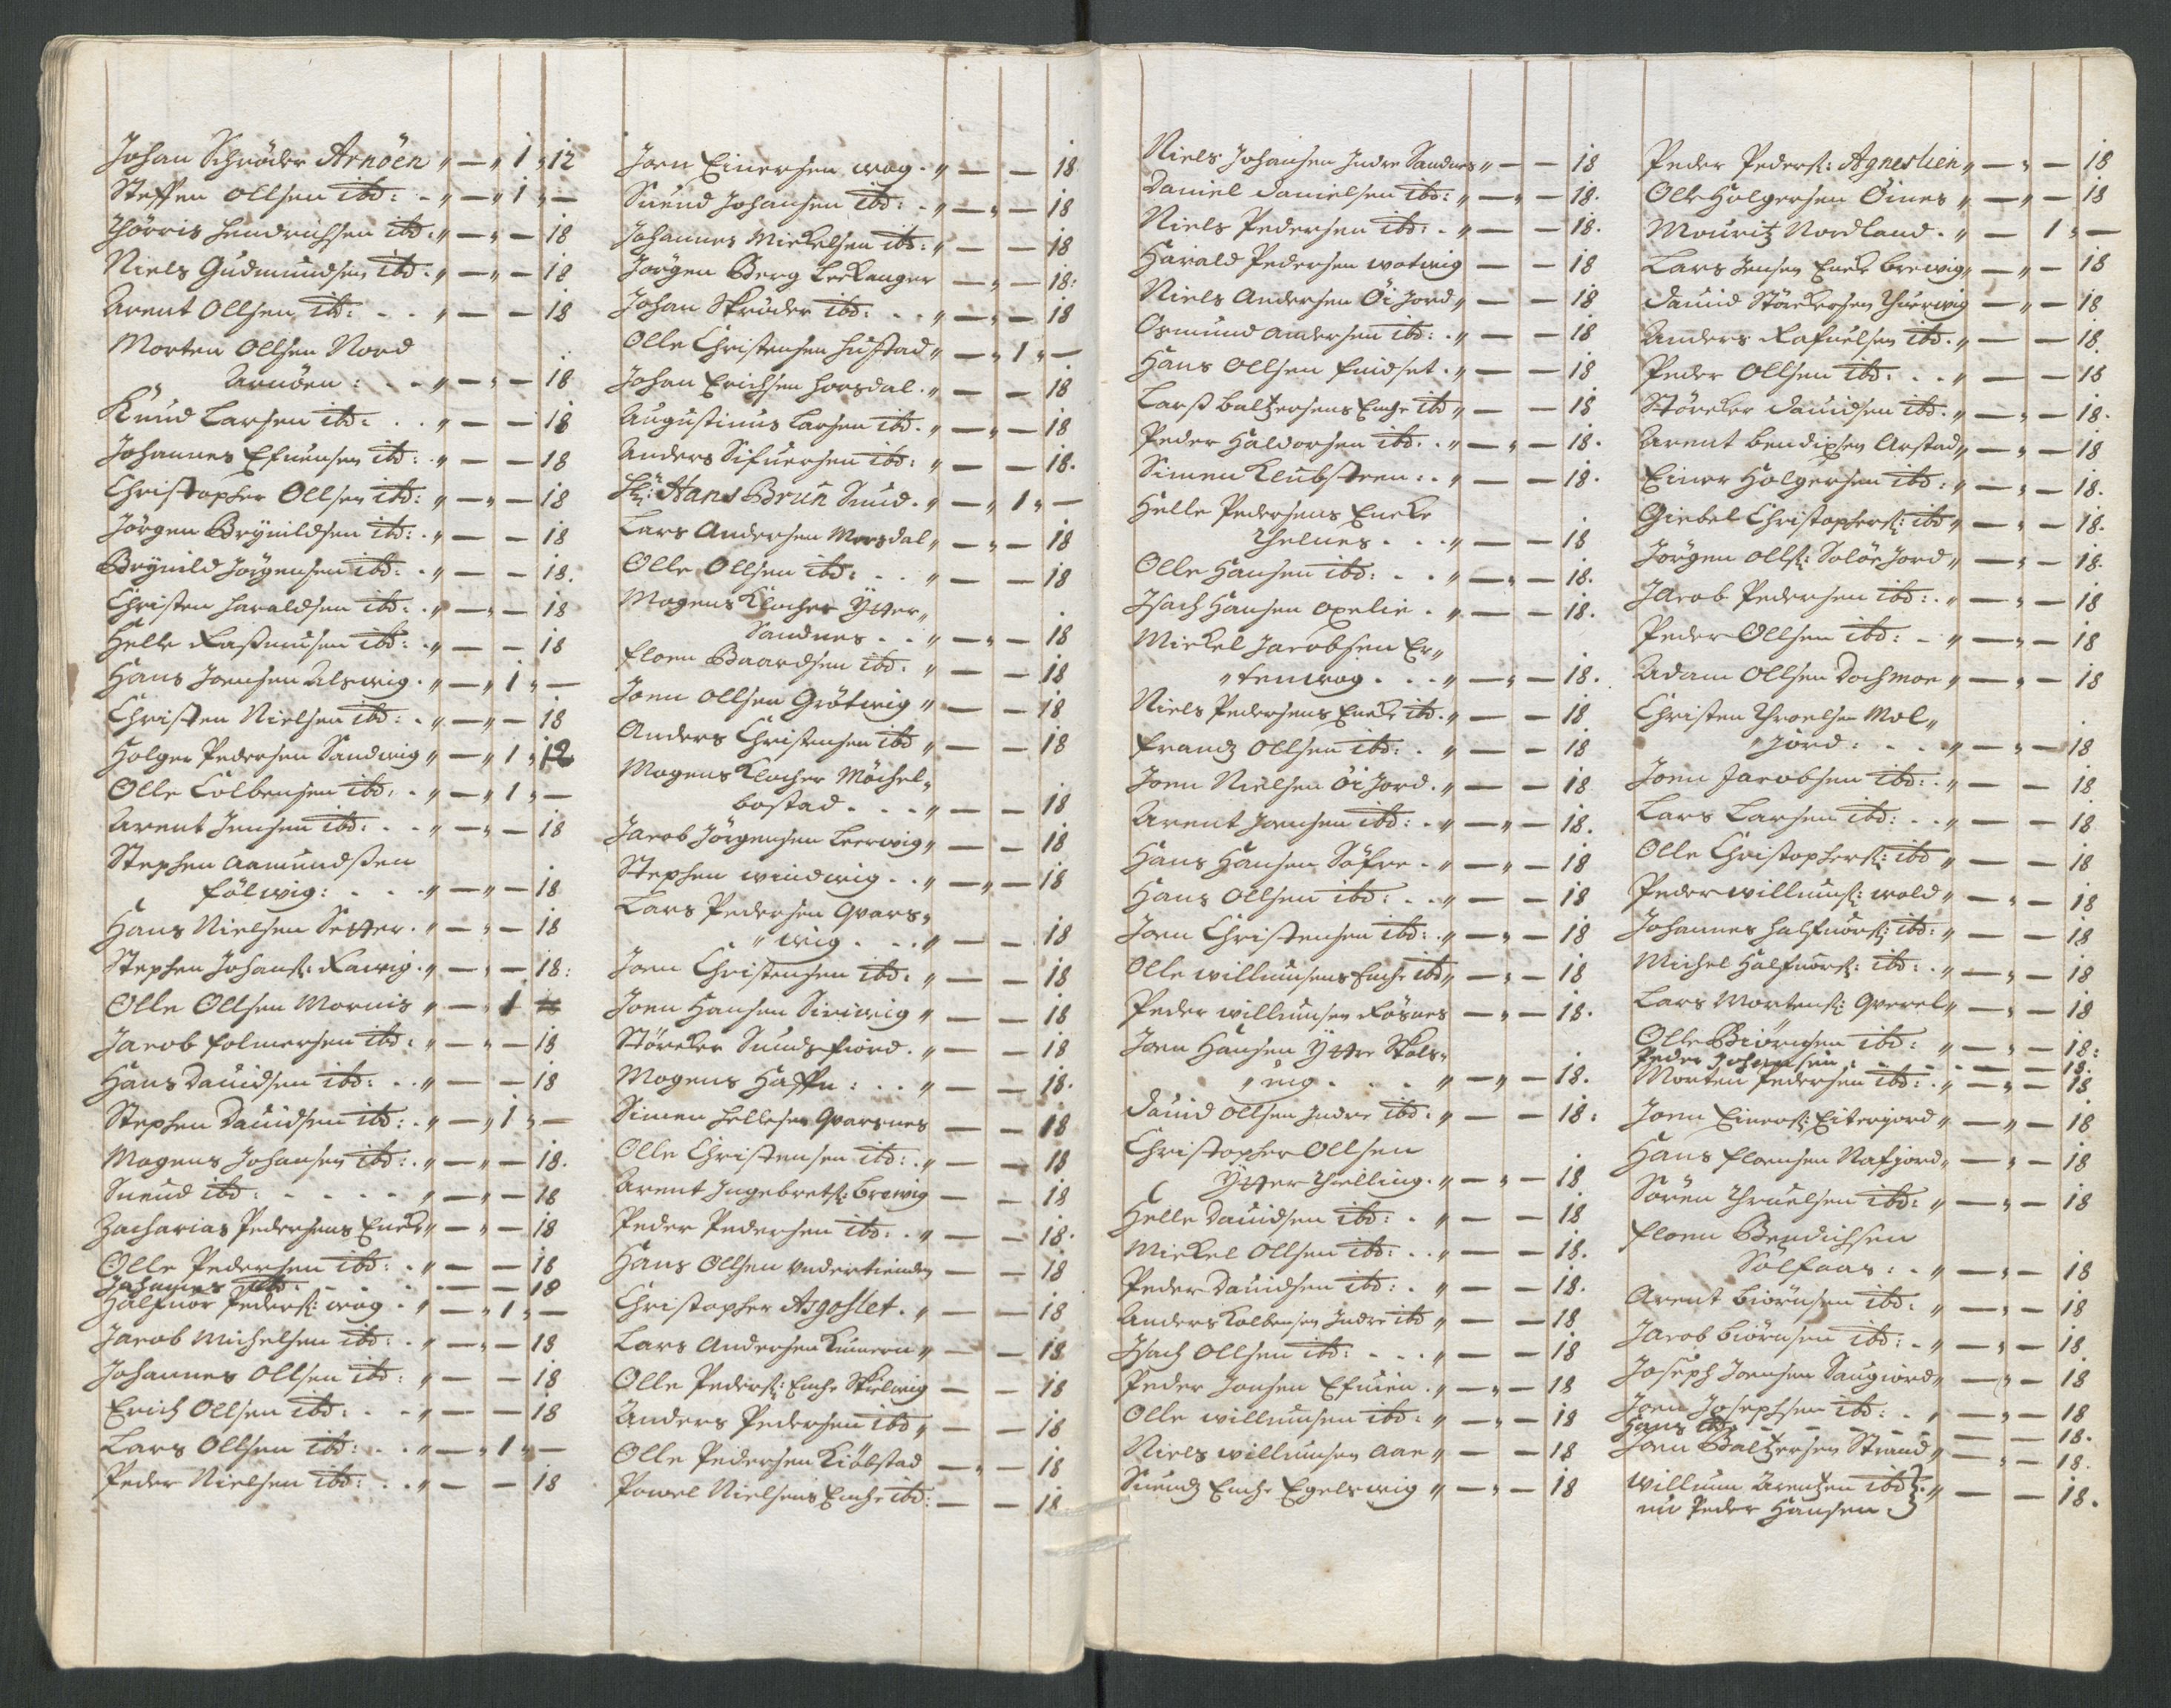 Johan Schröder Arnöen " — " 1 " 12
Steffen Ollsen ibd: - " — " 1 " —
Thörris Hendrichsen ibd: " — " — 18
Niels Gudmundsen ibd. " — " — 18
Arent Ollsen ibd: - - " — — 18
Morten Ollsen Nord
Arnöen: - - " — " — 18
Knud Larsen ibd: . . " — — 18
Johannes Efuensen ibd: . " — — 18
Christopher Ollsen ibd: " — " — 18
Jörgen Brÿnildsen ibd: . " — — 18
Brÿnild Jörgensen ibd: . " — — 18.
Christen Haraldsen ibd: . " — " — 18
Helle Rasmusen ibd: . " — — 18
Hans Joensen Alswig. " — " 1 " —
Christen Nielsen ibd: . " — " — 18
Holger Pedersen Sandwig " — " 1 " 12
Olle Colbensen ibd. . " — " 1 " —
Arent Jensen ibd: . - " — " — 18
Stephen Aamundsen
Fölwig: . . . " — " — 18
Hans Nielsen Setter. " — " — 18
Stephen Johans: Rawig. " — " — 18:
Olle Ollsen Mornis " — " 1
Jacob Folmersen ibd: " — " — 18
Hans Dauidsen ibd: . . " — — 18
Stephen Dauidsen ibd: . " — " 1 " —
Mogens Johansen ibd: . " — " — 18.
Suend ibd: - - - - " — " — 18
Zacharias Pedersens Encke " — " — 18
Olle Pedersen ibd: . " — — 18
Johannes ibd: - - - — — 18
Halfuor Peders: wog . " — " 1 " —
Jacob Michelsen ibd: . " — " — 18
Johannes Ollsen ibd: " — — 18
Erich Ollsen ibd: . . " — — 18
Lars Ollsen ibd: . . " — " 1 " —
Peder Nielsen ibd: . . " — — 18
Joen Einersen wog. " — — 18
Suend Johansen ibd: . " — " — 18
Johannes Mickelsen ibd: " — — 18
Jörgen Berg Leckanger — " — 18:
Johan Skröder ibd: . . " — " — 18
Olle Christensen Hustad " — " 1 " —
Johan Erichsen Horsdal. " — — 18
Augustinus Larsen ibd. " — " — 18
Anders Sifuersen ibd: " — — 18.
Hr: Hans Brun Sund. " — " 1 " —
Lars Andersen Morsdal " — " — 18
Olle Ollsen ibd: . . " — — 18
Mogens Klocher Ÿtter "
Sandnes . . " — " — 18
Floen Baardsen ibd. " — — 18
Joen Ollsen Grötwig " — — 18
Anders Christensen ibd " — — 18
Mogens Klocher Möchel "
bostad . . . " — — 18
Jacob Jörgensen Leerwig " — — 18
Stephen windwig. . " — " — 18
Lars Pedersen Qvars "
" wig . . . " — — 18
Joen Christensen ibd: " — — 18
Joen Hansen Siriwig " — — 18
Störcker Sundsfiord. " — — 18
Mogens Haffn: . . " — — 18.
Simen Hellesen Qvarsnes — — 18
Olle Christensen ibd: . " — — 18
Arent Ingebrets: Brewig — — 18
Peder Pedersen ibd: . " — — 18.
Hans Ollsen vndertienden — — 18
Christopher Asgoslet. " — — 18
Lars Andersen Kunern " — — 18
Olle Peders: Enche Skielwig — — 18
Anders Pedersen ibd " — — 18
Olle Pedersen Kiölstad — " — 18
Powel Nielsens Enche ibd: — — 18
Niels Johansen Indre Sandnes " — — 18
Daniel Danielsen ibd: " — " — 18.
Niels Pedersen ibd: . " — — 18.
Harald Pedersen watwig — — 18
Niels Andersen Öi Jord " — — 18
Osmund Andersen ibd: . " — — 18
Hans Ollsen Enidset . " — — 18
Lars Baltzersens Enche ibd " — — 18
Peder Haldorsen ibd. . " — " — 18.
Simen Klubsteen: . " — — 18.
Helle Pedersens Encke
Thelnes . . . " — — 18
Olle Hansen ibd: . . " — " — 18.
Isach Hansen Oxelie . " — — 18.
Mickel Jacobsen Er "
" tenwog . . . " — " — 18.
Niels Pedersens Encke ibd. " — — 18
Frandz Ollsen ibd: . " — — 18
Joen Nielsen Öi Jord. " — — 18
Arent Joensen ibd: . " — " — 18.
Hans Hansen Söfre . " — " — 18
Hans Ollsen ibd: . . " — — 18
Joen Christensen ibd: . " — " — 18
Olle willumsens Enche ibd " — " — 18
Peder willumsen Rösnes — " — 18.
Joen Hansen Ÿttre Skals "
" wig . . . " — " — 18.
Dauid Ollsen Indre ibd: " — — 18:
Christopher Ollsen
Ÿtter Thielling. " — " — 18
Helle Dauidsen ibd: . " — — 18
Mickel Ollsen ibd: . . " — — 18.
Peder Dauidsen ibd: . " — — 18.
Anders Kolbensen Indre ibd " — — 18
Isach Ollsen ibd: . . . " — — 18
Peder Jonsen Efuien. " — " — 18
Olle willumsen ibd: " — " — 18
Niels willumsen Aae " — — 18
Suendz Enche Egelswig " — " — 18
Peder Peders: Agneslien " — " — 18
Olle Holgersen Öines " — " — 18
Mouritz Nordland. " — 1 " —
Lars Jensen Encke Brewig " — " — 18
Dauid Störckersen Thuerwig — " — 18
Anders Rafuelsen ibd. " — — 18.
Peder Ollsen ibd: . . " — — 18
Störcker Dauidsen ibd: " — " — 18.
Arent Bendixsen Arstad " — " — 18
Einer Holgersen ibd: " — " — 18.
Giebel Christophers: ibd " — " — 18.
Jörgen Olls: Solöe Jord " — " — 18.
Jacob Pedersen ibd: . " — " — 18
Peder Ollsen ibd: - " — " — 18
Adam Ollsen Dochmoe " — " — 18
Christen Throelsen Mol "
" Jord: . . . " — " — 18
Joen Jacobsen ibd: . " — — 18
Lars Larsen ibd: . . " — — 18
Olle Christophers: ibd " — — 18
Peder willums: wold " — " — 18
Johannes Halfuors: ibd: " — — 18
Michel Halfuors: ibd: . " — " — 18
Lars Mortens: Qverel " — " — 18
Olle Biörnsen ibd: " — " — 18:
Peder Johansen: . . . — — 18.
Morten Pedersen ibd: . " — " — 18
Joen Einers: Eiterjord " — " — 18
Hans Floensen Nafjord " — " — 18
Sören Thruelsen ibd: " — " — 18
Floen Bendichsen
Solfaar: . " — " — 18
Arent Biörnsen ibd: " — " — 18
Jacob Biörnsen ibd: - " — " — 18
Joseph Joensen Saugiord " — " — 18
Joen Josephsen ibd: . " — " — 18
Hans ibd: - - - - — — 18.
Joen Baltzersen Strand " — " — 18.
Willum Arentzen ibd } " — — 18.
nu Peder Hansen.